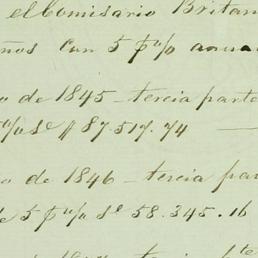 el Comisario Britan
años con 5 p% anua
o de 1845 - tercia parte
p% Se // 87.517.74 —
o de 1846 - tercia par
de 5 p% Se 58.345.16